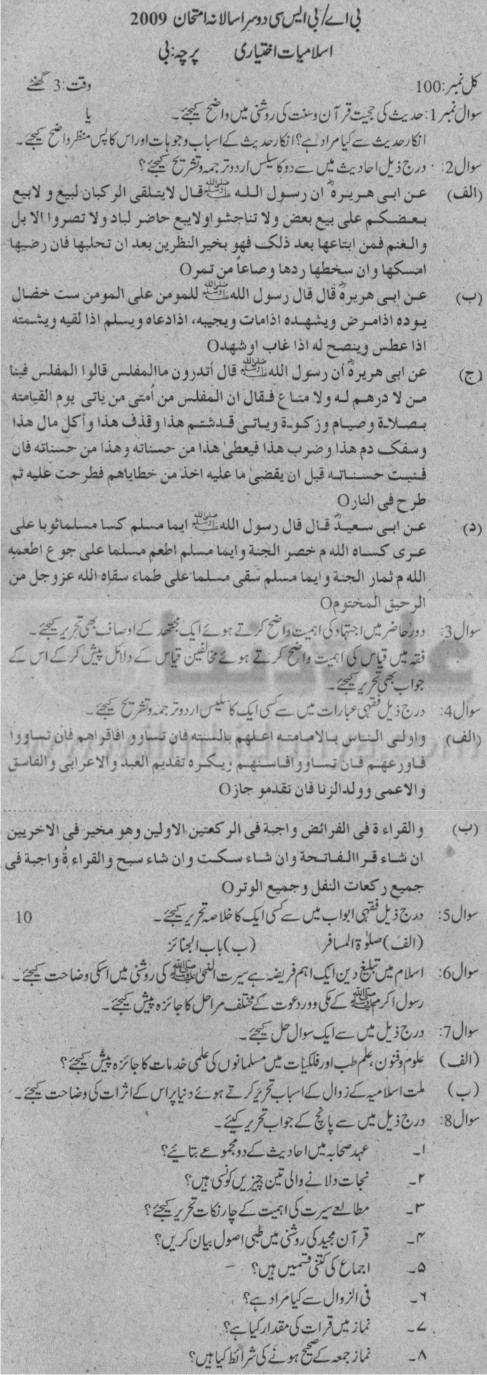 بی اے/بی ایس سی دوسرا سالانہ امتحان 2009
اسلامیات اختیاری پرچہ: بی
کل نمبر: 100 وقت: 3 گھنٹے
سوال نمبر 1: حدیث کی حجیت قرآن و سنت کی روشنی میں واضح کیجئے۔ یا
انکار حدیث سے کیا مراد ہے؟ انکار حدیث کے اسباب و وجوہات اور اس کا پس منظر واضح کیجئے۔
سوال 2: درج ذیل احادیث میں سے دو کا سلیس اردو ترجمہ و تشریح کیجئے؟
(الف) عن ابی هریرةؓ ان رسول اللہ ﷺ قال لا یتلقی الرکبان لبیع و لا بیع
بعضکم علی بیع بعض ولا تناجشو اولا یبع حاضر لباد ولا تصروا الابل
والغنم فمن ابتاعها بعد ذلک فهو بخیر النظرین بعد ان تحلبها فان رضیها
امسکها وان سخطها ردها وصاعاً من تمرO
(ب) عن ابی هریرةؓ قال قال رسول اللہ ﷺ للمومن علی المومن ست خصال
یوده اذا مرض ویشهده اذامات ویجیبه، اذادعاه ویسلم اذا لقیه ویشمته
اذا عطس وینصح له اذا غاب اوشهدO
(ج) عن ابی هریرةؓ ان رسول اللہ ﷺ قال أتدرون ماالمفلس قالوا المفلس فینا
من لا درهم له ولا متاع فقال ان المفلس من اُمتی من یاتی یوم القیامته
بصلاة وصیام وزکوة ویاتی قدشتم هذا وقذف هذا وأکل مال هذا
وسفک دم هذا وضرب هذا فیعطی هذا من حسناته وهذا من حسناته فان
فنیت حسناته قبل ان یقضی ما علیه اخذ من خطایاهم فطرحت علیه ثم
طرح فی النارO
(د) عن ابی سعیدؓ قال قال رسول اللہ ﷺ ایما مسلم کسا مسلماثوبا علی
عری کساه الله م خضر الجنة وایما مسلم اطعم مسلما علی جوع اطعمه
الله م ثمار الجنة وایما مسلم سقی مسلما علی ظماء سقاه الله عزوجل من
الرحیق المختومO
سوال 3: دور حاضر میں اجتہاد کی اہمیت واضح کرتے ہوئے ایک مجتہد کے اوصاف بھی تحریر کیجئے۔
فقہ میں قیاس کی اہمیت واضح کرتے ہوئے مخالفین قیاس کے دلائل پیش کر کے اس کے
جواب بھی تحریر کیجئے۔
سوال 4: درج ذیل فقہی عبارات میں سے کسی ایک کا سلیس اردو ترجمہ و تشریح کیجئے۔
(الف) واولی الناس بالامامته اعلهم بالسنته فان تساوو افاقراهم فان تساووا
فاورعهم فان تساووا فاسنهم ویکره تقدیم العبد والاعرابی والفاسق
والاعمی وولدالزنا فان تقدمو جازO
(ب) والقراءة فی الفرائض واجبة فی الرکعتین الاولین وهو مخیر فی الاخریین
ان شاء قراالفاتحة وان شاء سکت وان شاء سبح والقراءةُ واجبة فی
جمیع رکعات النفل وجمیع الوترO
سوال 5: درج ذیل فقہی ابواب میں سے کسی ایک کا خلاصہ تحریر کیجئے۔ 10
(الف) صلوٰۃ المسافر (ب) باب الجنائز
سوال 6: اسلام میں تبلیغ دین ایک اہم فریضہ ہے سیرت النبی ﷺ کی روشنی میں اسکی وضاحت کیجئے۔
رسول اکرم ﷺ کے مکی دور دعوت کے مختلف مراحل کا جائزہ پیش کیجئے۔
سوال 7: درج ذیل میں سے ایک سوال حل کیجئے۔
(الف) علوم و فنون، علم طب اور فلکیات میں مسلمانوں کی علمی خدمات کا جائزہ پیش کیجئے؟
(ب) ملت اسلامیہ کے زوال کے اسباب تحریر کرتے ہوئے دنیا پر اس کے اثرات کی وضاحت کیجئے۔
سوال 8: درج ذیل میں سے پانچ کے جواب تحریر کیئے۔
۱۔ عہد صحابہ میں احادیث کے دو مجموعے بتائیے؟
۲۔ نجات دلانے والی تین چیزیں کونسی ہیں؟
۳۔ مطالعے سیرت کی اہمیت کے چار نکات تحریر کیجئے؟
۴۔ قرآن مجید کی روشنی میں طبی اصول بیان کریں؟
۵۔ اجماع کی کتنی قسمیں ہیں؟
۶۔ فی الزوال سے کیا مراد ہے؟
۷۔ نماز میں قرات کی مقدار کیا ہے؟
۸۔ نماز جمعہ کے صحیح ہونے کی شرائط کیا ہیں؟